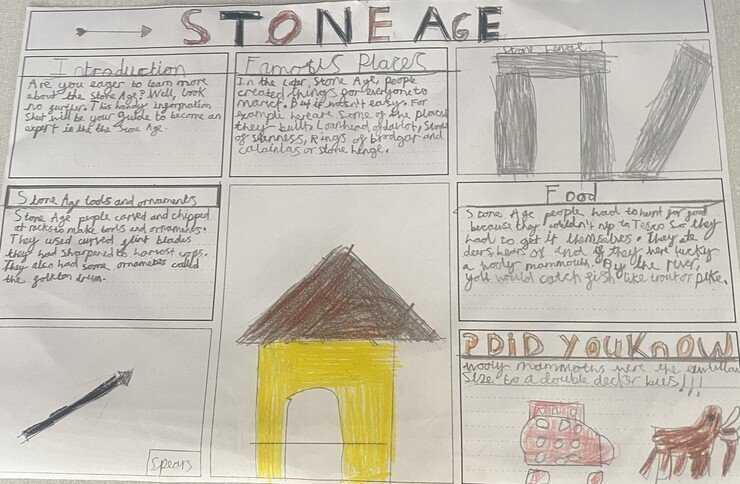 STONE AGE
Introduction
Are you eager to learn more
about the Stone Age? Well, look
no further. This handy information
sheet will be your guide to become an
expert in the the Stone Age.
Famous Places
In the later Stone Age, people
created things for everyone to
marvel. But it wasn't easy. For
example here are some of the places
they built: Loanhead of daviot, Stones
of stenness, Rings of brodgar and
calanias or stone henge.
Stone henge
Stone Age tools and ornaments
Stone Age people carved and chipped
at rocks to make tools and ornaments.
They used curved flint blades
they had sharpened to harvest crops.
They also had some ornaments called
the folkton drum.
Food
Stone Age people had to hunt for food
because they couldn't nip to Tesco so they
had to get it themselves. They ate
deers, bears ox and if they were lucky
a wooly mammouth. By the river,
you would catch fish like trout or pike.
Spears
?DID YOU KNOW
wooly mammoths were the
size to a double decker bus!!!